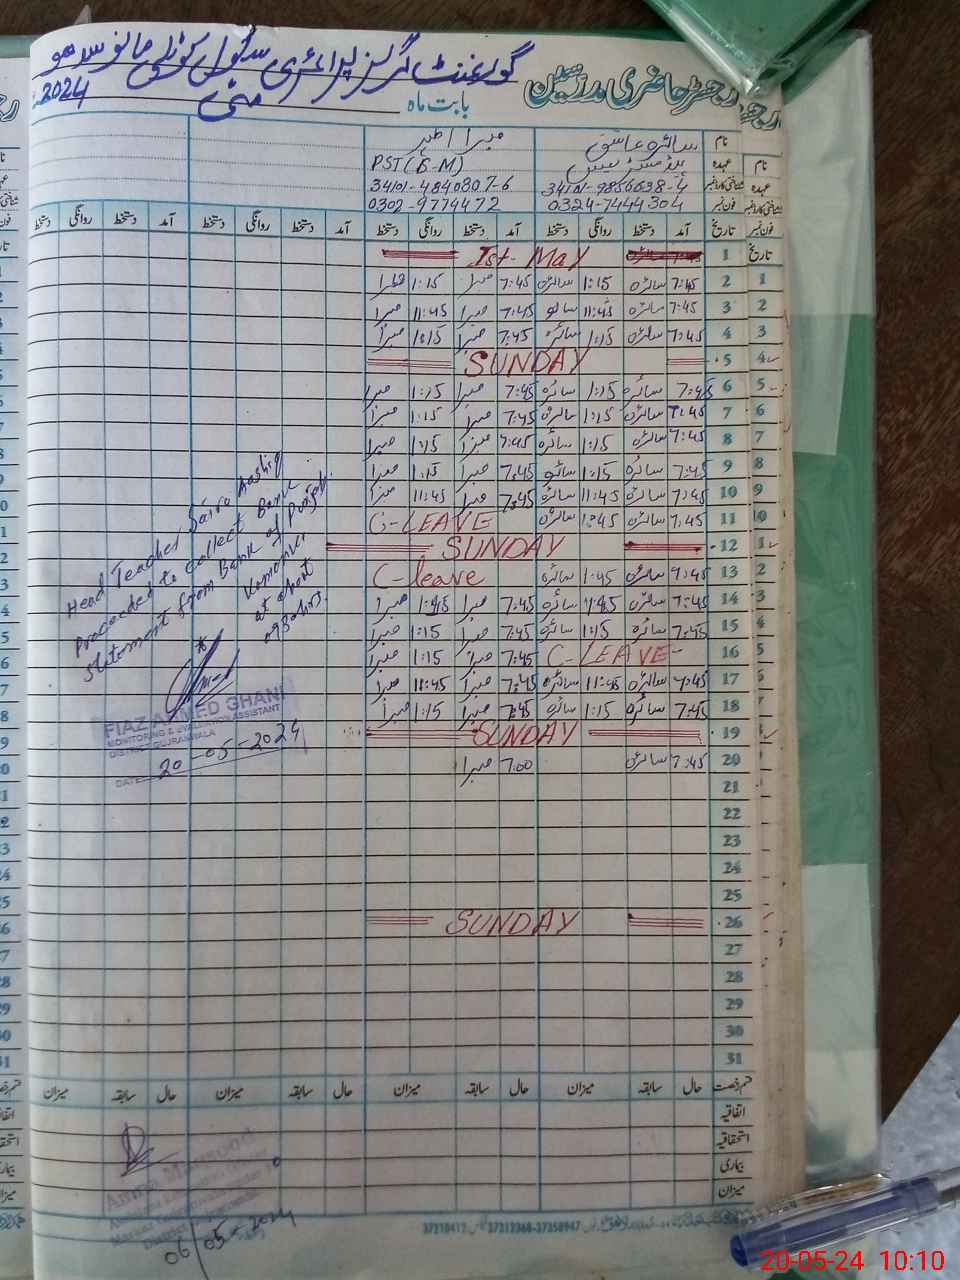 گورنمنٹ گرلز پرائمری سکول کوٹلی مانو سدھو
رجسٹر حاضری مدرسین
بابت ماہ مئی 2024
نام سائرہ عاشق
عہدہ ہیڈ مسٹریس PST(E-M)
شناختی کارڈ نمبر 34101-4840807-6
فون نمبر 0324-7444304 0302-9774472
تاریخ آمد دستخط روانگی دستخط آمد دستخط روانگی دستخط آمد دستخط روانگی دستخط آمد دستخط روانگی دستخط
1 Ist-May
2 7:45 سائرہ 1:15 سائرہ 7:45 1:15
3 7:45 سائرہ 11:45 7:45 11:45
4 7:45 سائرہ 1:15 سائرہ 7:45 1:15
5 SUNDAY
6 7:45 سائرہ 1:15 سائرہ 7:45 1:15
7 7:45 سائرہ 1:15 سائرہ 7:45 1:15
8 7:45 سائرہ 1:15 سائرہ 7:45 1:15
9 7:45 سائرہ 1:15 سائرہ 7:45 1:15
10 7:45 سائرہ 11:45 سائرہ 7:45 11:45
11 7:45 سائرہ 1:45 سائرہ C-LEAVE
12 SUNDAY
13 7:45 سائرہ 1:45 سائرہ C-leave
14 7:45 سائرہ 1:45 سائرہ 7:45 1:45
15 7:45 سائرہ 1:15 سائرہ 7:45 1:15
16 C-LEAVE- 7:45 1:15
17 7:45 سائرہ 11:45 سائرہ 7:45 11:45
18 7:45 سائرہ 1:15 سائرہ 7:45 1:15
19 SUNDAY
20 7:45 سائرہ 7:00
21
22
23
24
25
26 SUNDAY
27
28
29
30
31
قسم رخصت حال سابقہ میزان حال سابقہ میزان حال سابقہ میزان حال سابقہ میزان
اتفاقیہ
استحقاقیہ
بیماری
میزان
Head Teacher Saira Aashiq
Proceeded to collect Bank
statement from Bank of Punjab
Kamonki
at about
0930hrs.
FIAZ AHMED GHANI
MONITORING & EVALUATION ASSISTANT
DISTRICT GUJRANWALA
DATE 20-05-2024
06/05-2024
20-05-24 10:10